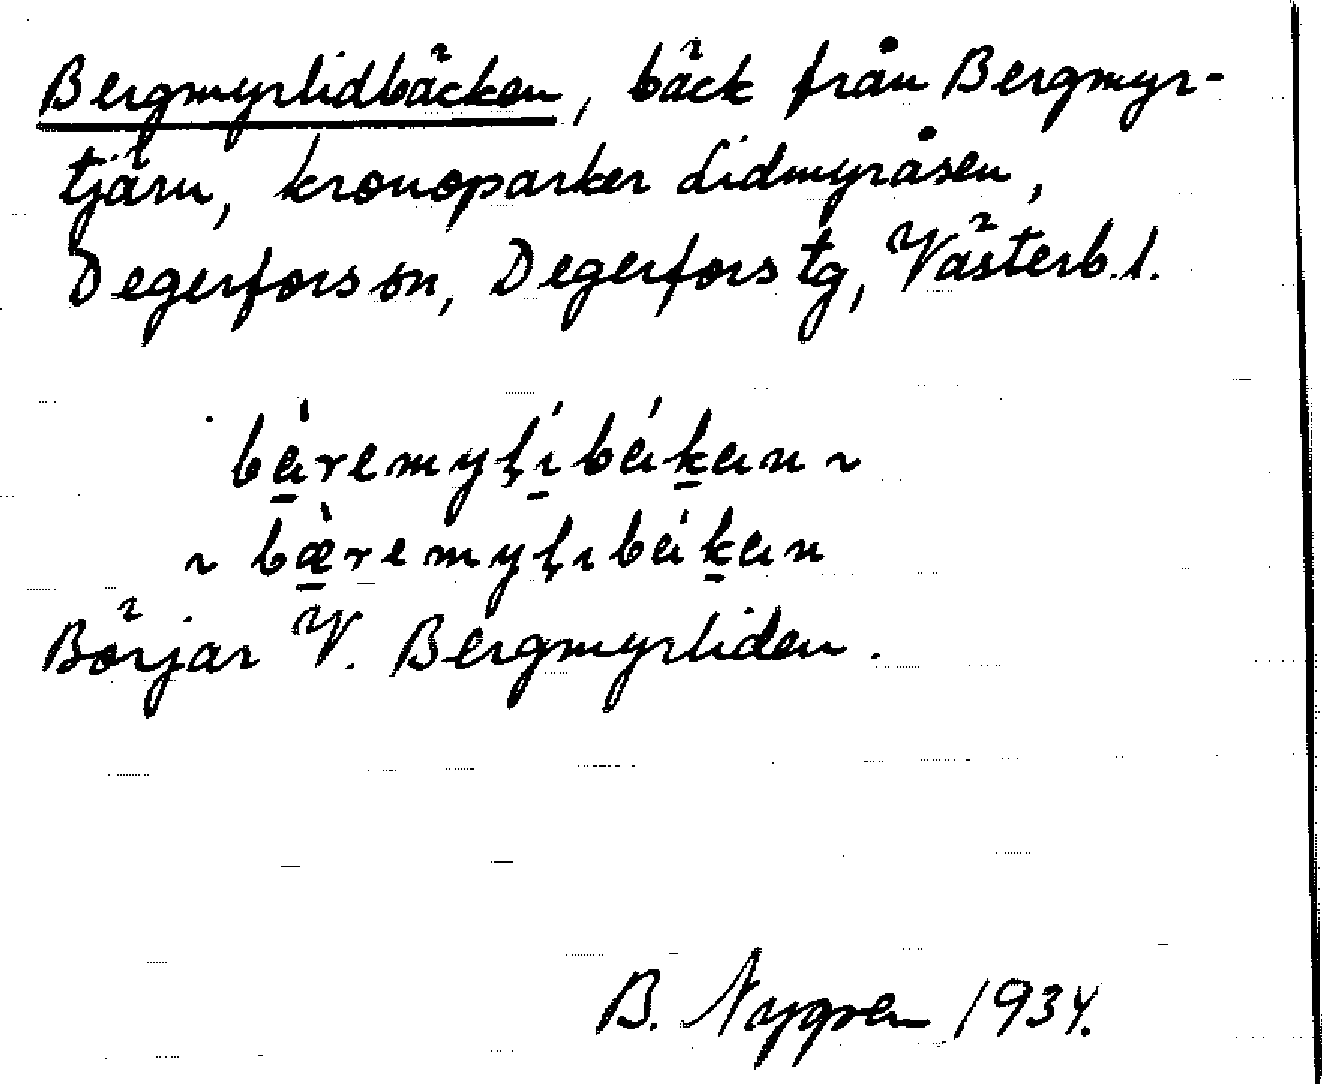 Bergmyrlidbäcken, bäck från Bergmyr-
tjärn, kronoparken Lidmyråsen,
Degerfors sn, Degerfors tg, Västerb. l.
Börjar V. Bergmyrliden.
B. Nygren 1934.